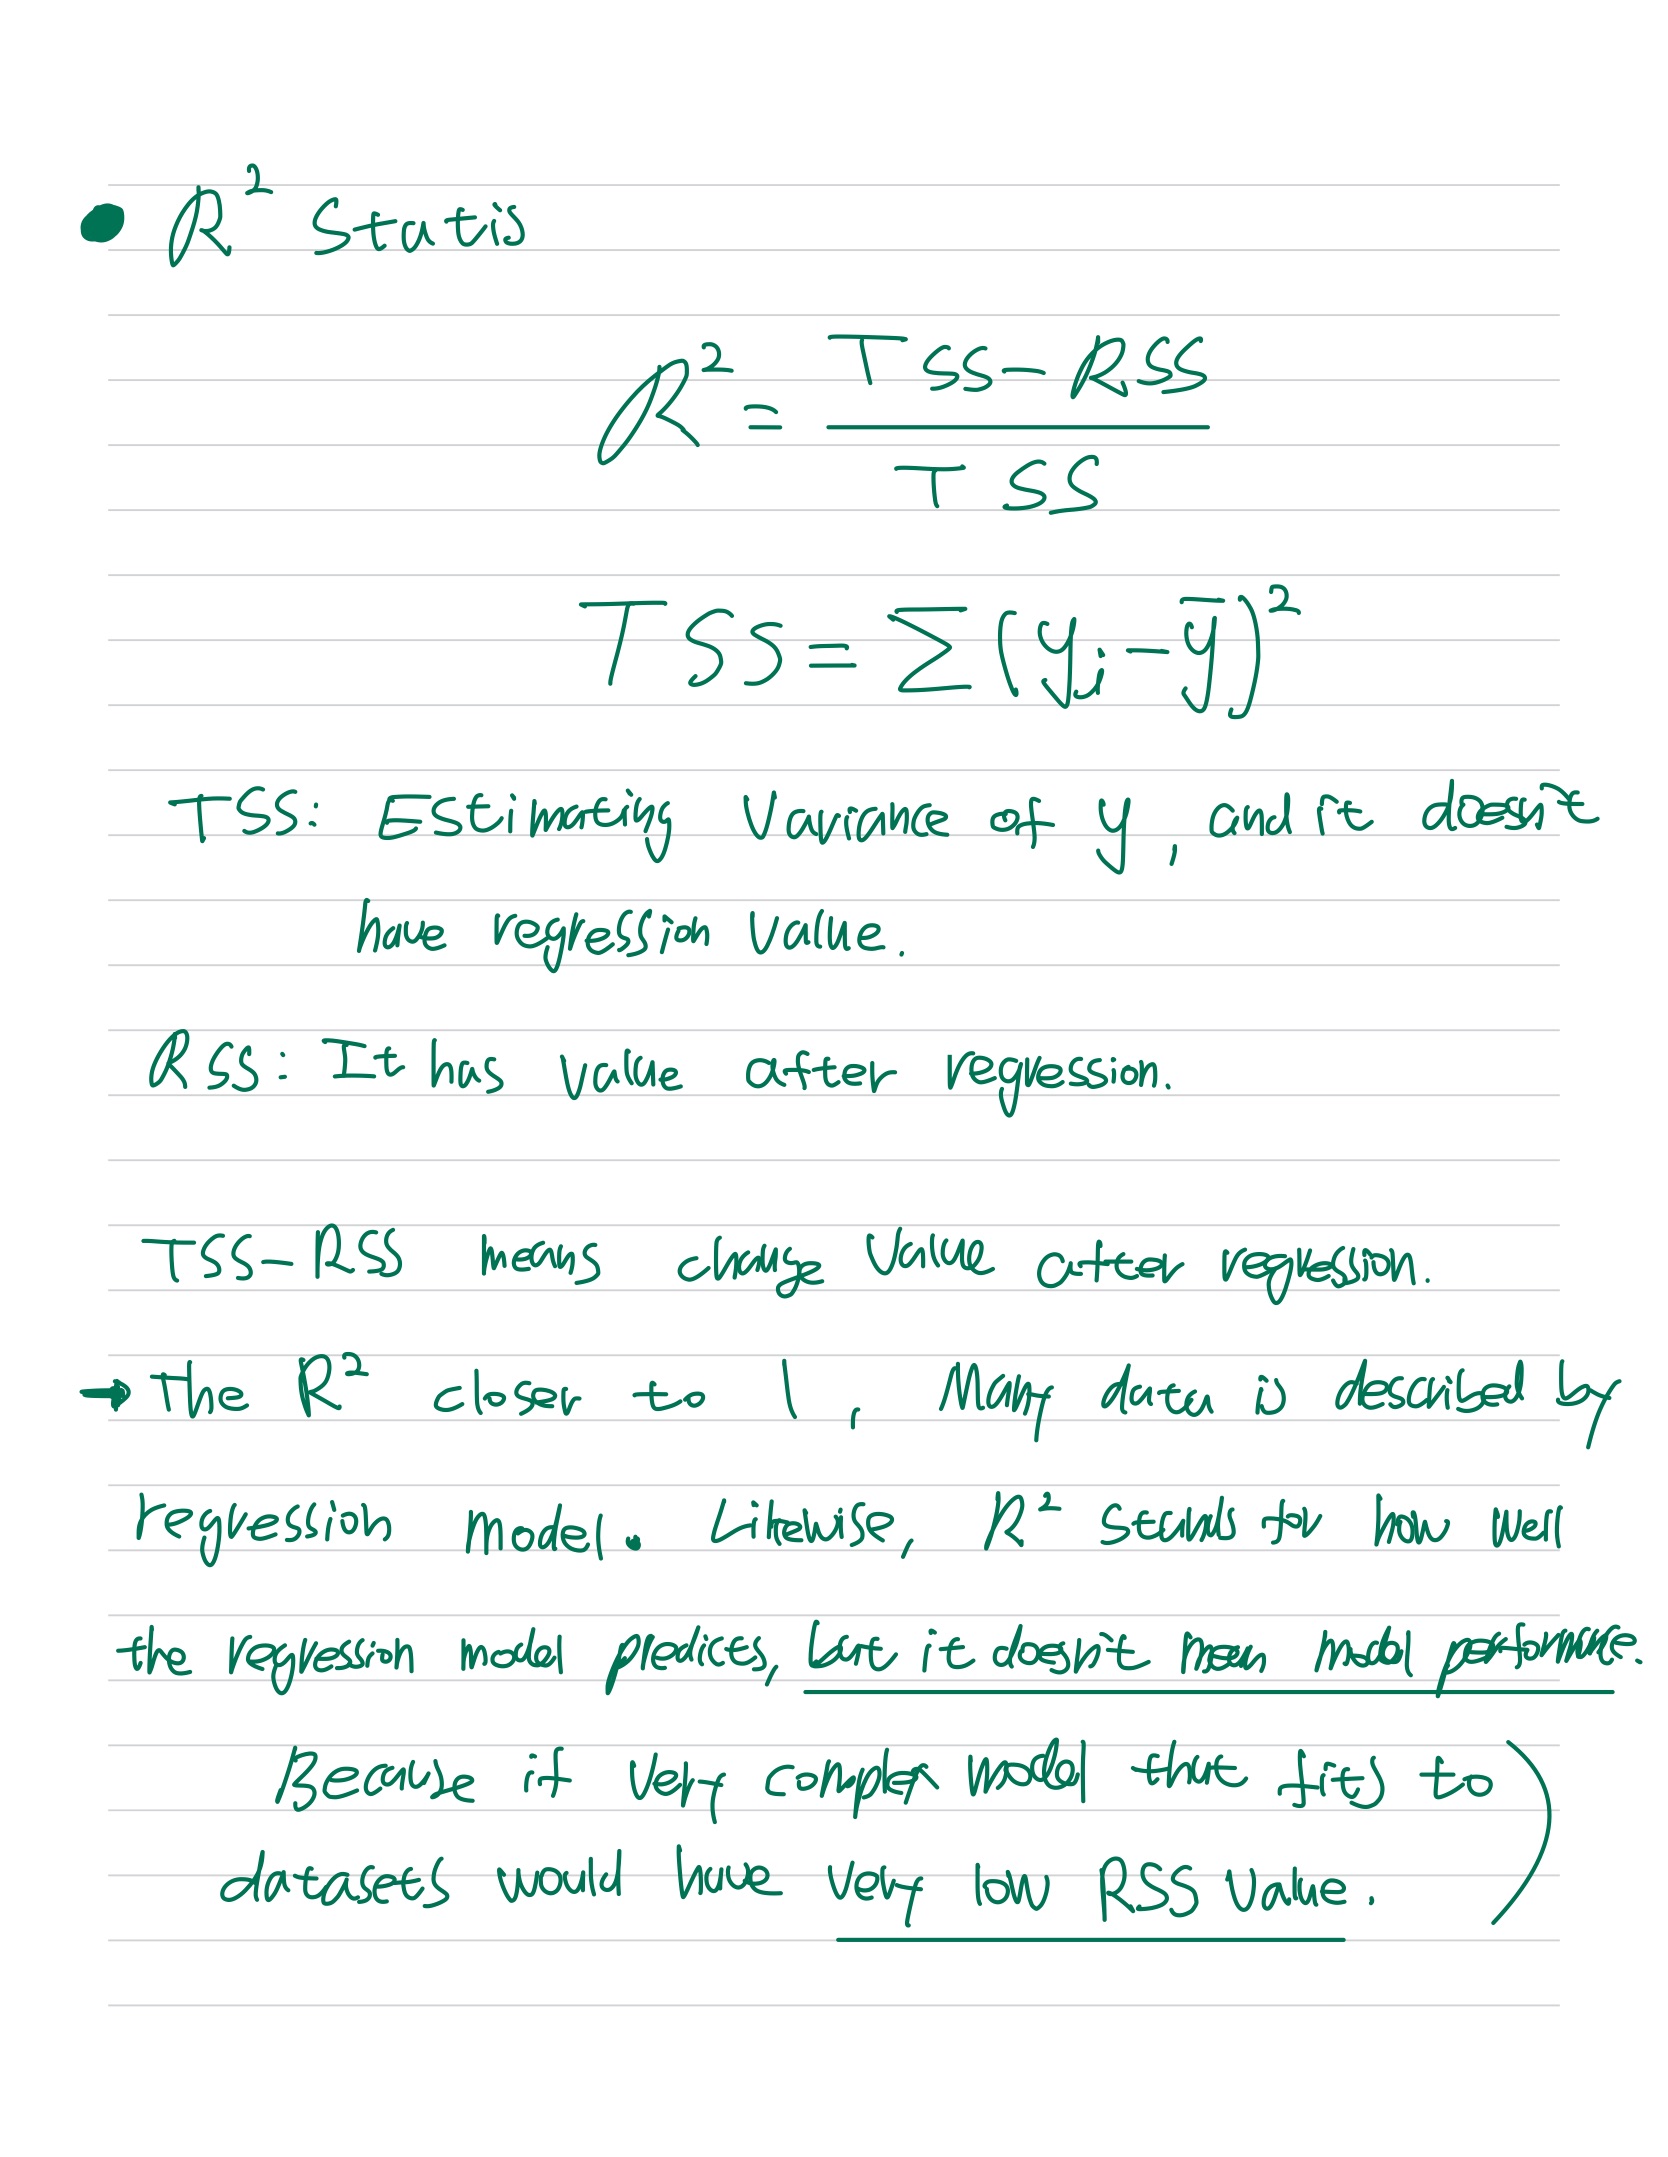 ● R² Statis
R² = (TSS - RSS) / TSS
TSS = Σ(yi - ȳ)²
TSS: Estimating Variance of y, and it doesn't
have regression value.
RSS: It has value after regression.
TSS - RSS means change value after regression.
→ The R² closer to 1, Many data is described by
regression model. Likewise, R² stands for how well
the regression model predicts, but it doesn't mean model performance.
Because if very complex model that fits to
datasets would have very low RSS value. )